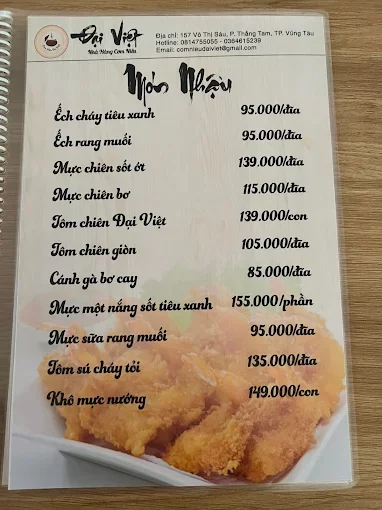 Đại Việt
Nhà Hàng Cơm Niêu
Địa chỉ: 157 Võ Thị Sáu, P. Thắng Tam, TP. Vũng Tàu
Hotline: 0814755055 - 0364615239
Email: comnieudaiviet@gmail.com
Món Nhậu
Ếch cháy tiêu xanh 95.000/đĩa
Ếch rang muối 95.000/đĩa
Mực chiên sốt ớt 139.000/đĩa
Mực chiên bơ 115.000/đĩa
Tôm chiên Đại Việt 139.000/con
Tôm chiên giòn 105.000/đĩa
Cánh gà bơ cay 85.000/đĩa
Mực một nắng sốt tiêu xanh 155.000/phần
Mực sữa rang muối 95.000/đĩa
Tôm sú cháy tỏi 135.000/đĩa
Khô mực nướng 149.000/con